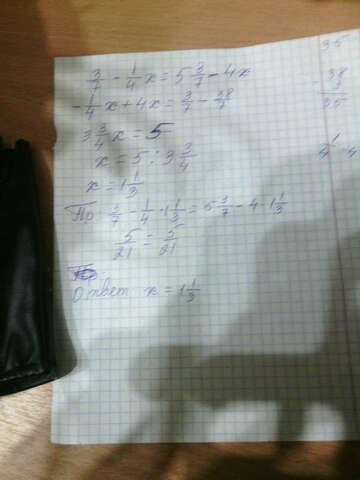 3/7 - 1/4x = 5 3/7 - 4x
-1/4x + 4x = 3/7 - 38/7
3 3/4x = 5
x = 5 : 3 3/4
x = 1 1/3
Пр: 3/7 - 1/4 · 1 1/3 = 5 3/7 - 4 · 1 1/3
5/21 = 5/21
Ответ x = 1 1/3
35
- 38
3
35